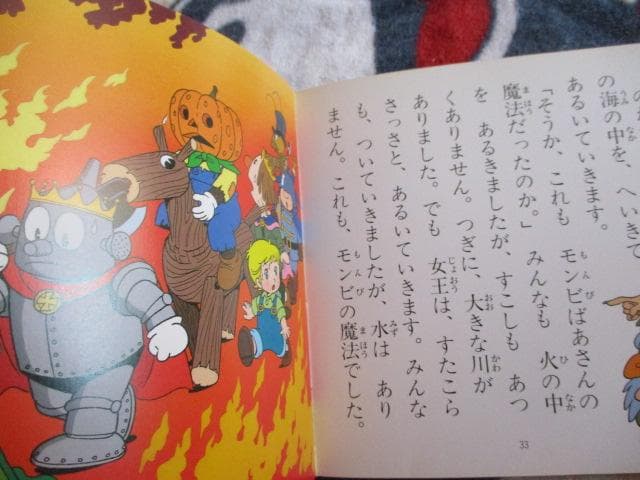 の海の中を、へいきで
あるいていきます。
「そうか、これも モンビばあさんの
魔法だったのか。」 みんなも 火の中
を あるきましたが、すこしも あつ
くありません。つぎに、大きな川が
ありました。でも 女王は、すたこら
さっさと、あるいていきます。みんな
も、ついていきましたが、水は あり
ません。これも、モンビの魔法でした。
33